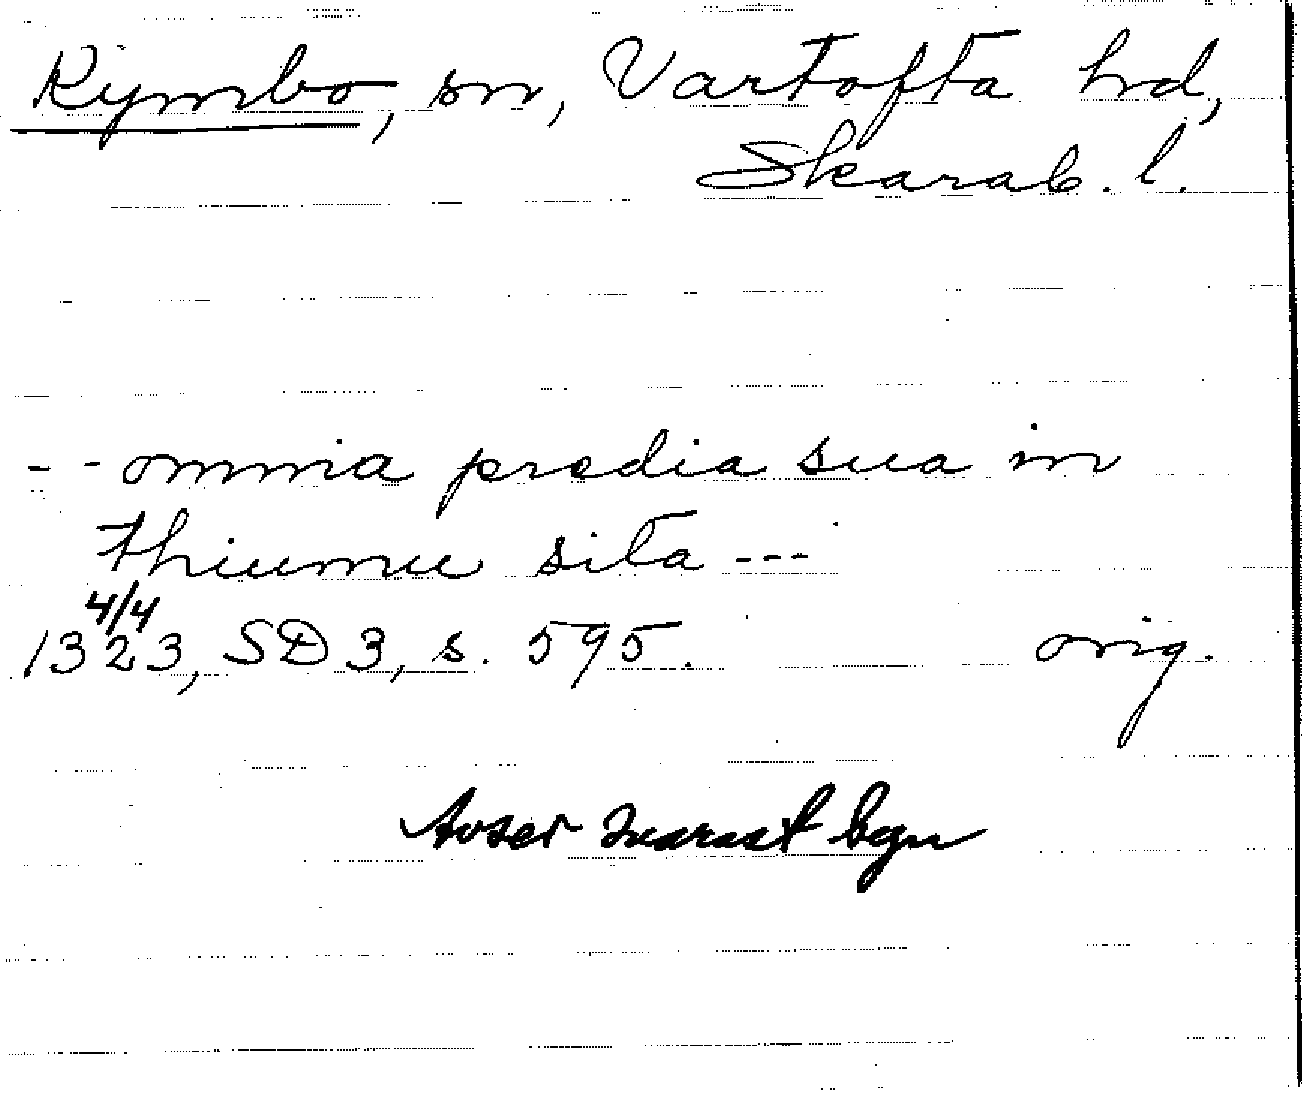 Kymbo, sn, Vartofta hd,
Skarab. l.
- - omnia predia sua in
thiumu sita ---
4/4
1323, SD 3, s. 595. orig.